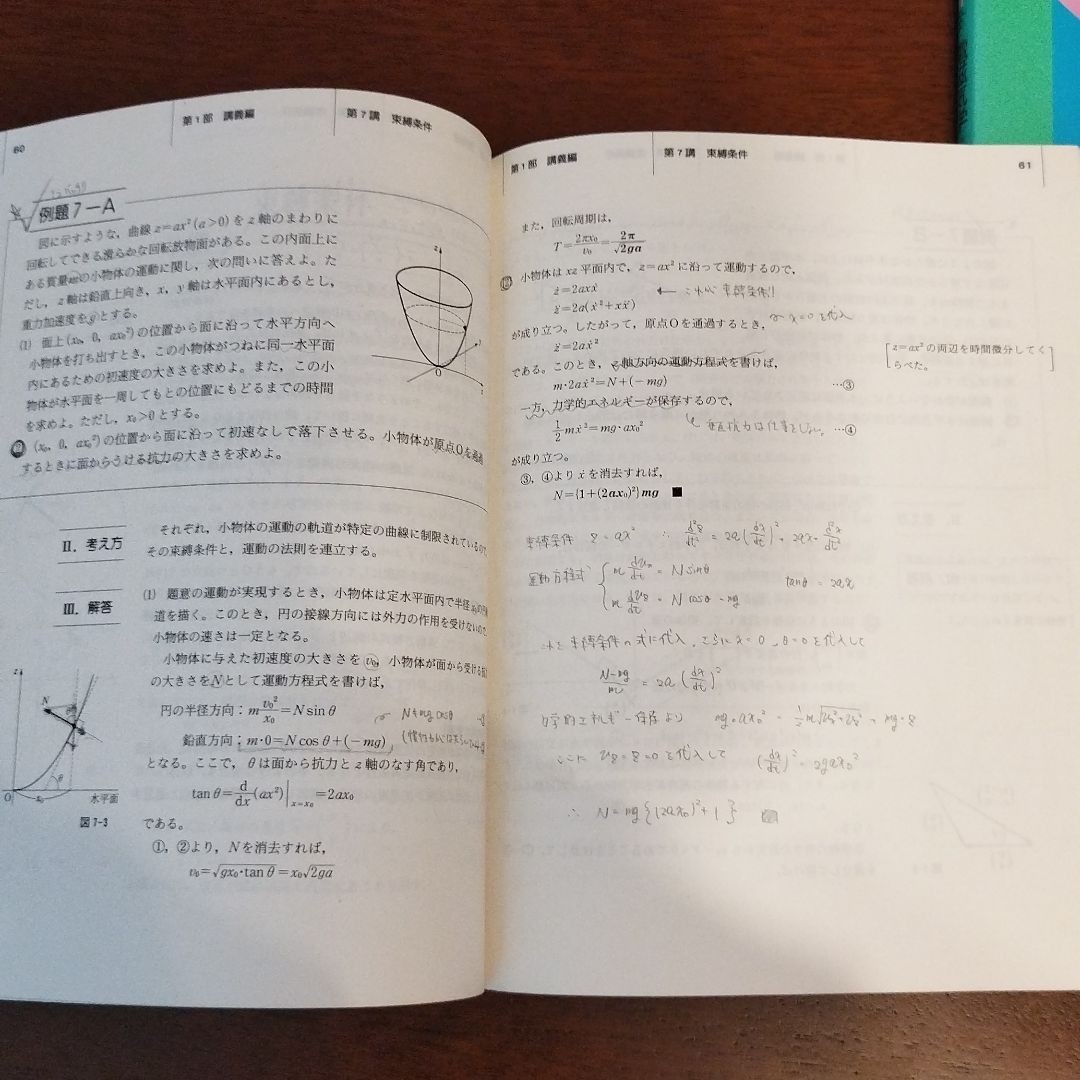 60
第1部 講義編
第7講 束縛条件
例題7-A
図に示すような，曲線z=ax²(a>0)をz軸のまわりに
回転してできる滑らかな回転放物面がある。この内面上に
ある質量mの小物体の運動に関し，次の問いに答えよ。た
だし，z軸は鉛直上向き，x，y軸は水平面内にあるとし，
重力加速度をgとする。
(1) 面上(x₀, 0, ax₀²)の位置から面に沿って水平方向へ
小物体を打ち出すとき，この小物体がつねに同一水平面
内にあるための初速度の大きさを求めよ。また，この小
物体が水平面を一周してもとの位置にもどるまでの時間
を求めよ。ただし，x₀>0とする。
(x₀, 0, ax₀²)の位置から面に沿って初速なしで落下させる。小物体が原点Oを通過
するときに面からうける抗力の大きさを求めよ。
z
O
II. 考え方
それぞれ，小物体の運動の軌道が特定の曲線に制限されているので
その束縛条件と，運動の法則を連立する。
III. 解答
(1) 題意の運動が実現するとき，小物体は定水平面内で半径x₀の
道を描く。このとき，円の接線方向には外力の作用を受けないので
小物体の速さは一定となる。
小物体に与えた初速度の大きさをv₀，小物体が面から受ける
の大きさをNとして運動方程式を書けば，
円の半径方向：m v₀²/x₀ = N sin θ
N=mg cosθ
鉛直方向：m·0=N cos θ+(−mg)
となる。ここで，θは面から抗力とz軸のなす角であり，
tan θ = d/dx (ax²)|x=x₀ = 2ax₀
である。
①，②より，Nを消去すれば，
v₀=√gx₀·tan θ=x₀√2ga
z
N
θ
O
x₀
水平面
図7-3
第1部 講義編
第7講 束縛条件
61
また，回転周期は，
T= 2πx₀/v₀ = 2π/√2ga
小物体はxz平面内で，z=ax²に沿って運動するので，
ż=2axẋ
← これが束縛条件!!
z̈=2a(ẋ²+xẍ)
が成り立つ。したがって，原点Oを通過するとき，
x=0を代入
z̈=2aẋ²
[z=ax²の両辺を時間微分してく
らべた。]
である。このとき，z軸方向の運動方程式を書けば，
m·2aẋ²=N+(−mg) …③
一方，力学的エネルギーが保存するので，
½mẋ²=mg·ax₀² …④
垂直抗力は仕事をしない。
が成り立つ。
③，④よりẋを消去すれば，
N={1+(2ax₀)²}mg ■
束縛条件 z=ax² ∴ d²z/dt² = 2a(dx/dt)²+2ax·d²x/dt²
運動方程式 { m dvₓ/dt = N sinθ
tanθ = 2ax
m dv_z/dt = N cosθ − mg
これを束縛条件の式に代入、さらにx=0、θ=0を代入して
(N−mg)/m = 2a(dx/dt)²
ここにv_z=z=0を代入して (dx/dt)² = 2gax₀²
∴ N=mg{(2ax₀)²+1}